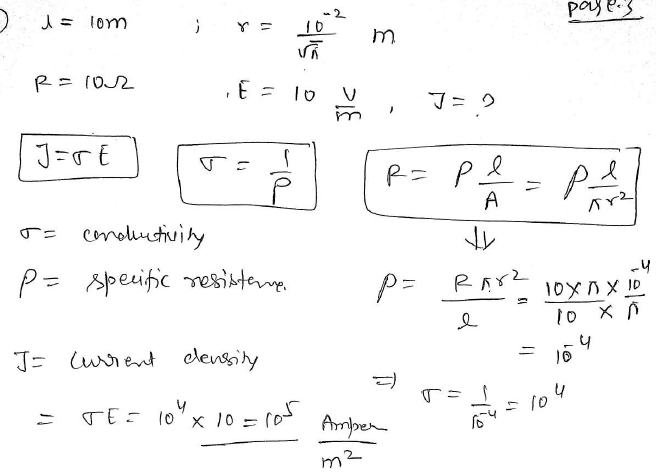 page.3
l = 10m ; r = 10⁻²/√π m
R = 10Ω , E = 10 V/m , J = ?
J = σE
σ = 1/ρ
R = ρ l/A = ρ l/πr²
σ = conductivity
⇓
ρ = specific resistence.
ρ = Rπr²/l = 10×π×10⁻⁴/10×π
= 10⁻⁴
J = Current density
⇒ σ = 1/10⁻⁴ = 10⁴
= σE = 10⁴ × 10 = 10⁵ Amper/m²